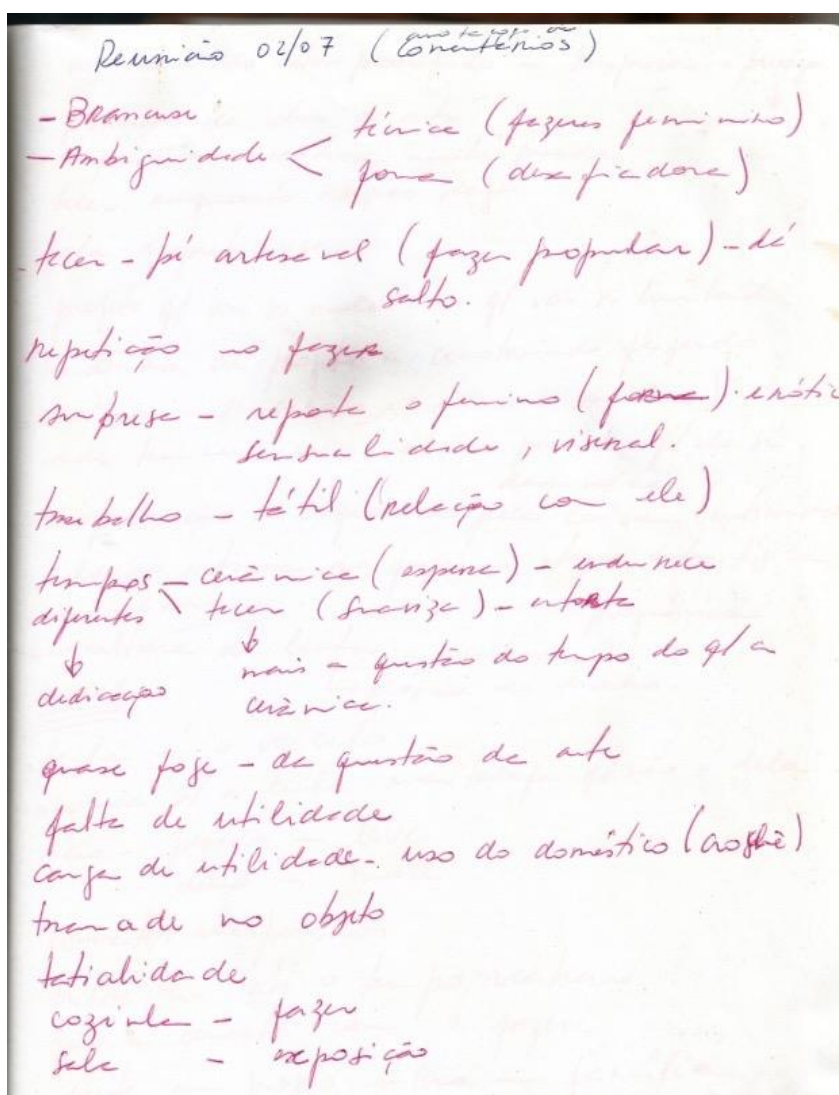 Reunião 02/07 (anotações ou
comentários)
- Brancusi
- Ambiguidade < técnica (fazeres feminino)
forma (desafiadora)
- tecer - artesanal (fazer popular) - dá
salto.
repetição no fazer
surpresa - reporta o feminino (forma). erótic
sensualidade, visceral.
trabalho - tátil (relação com ele)
tempos - cerâmica (espera) - endurece
diferentes \ tecer (suaviza) -
↓ ↓
dedicação mais a questão do tempo do q/ a
cerâmica.
quase foge - da questão da arte
falta de utilidade
carga de utilidade - uso do doméstico (crochê)
no objeto
cozinha - fazer
sala - exposição